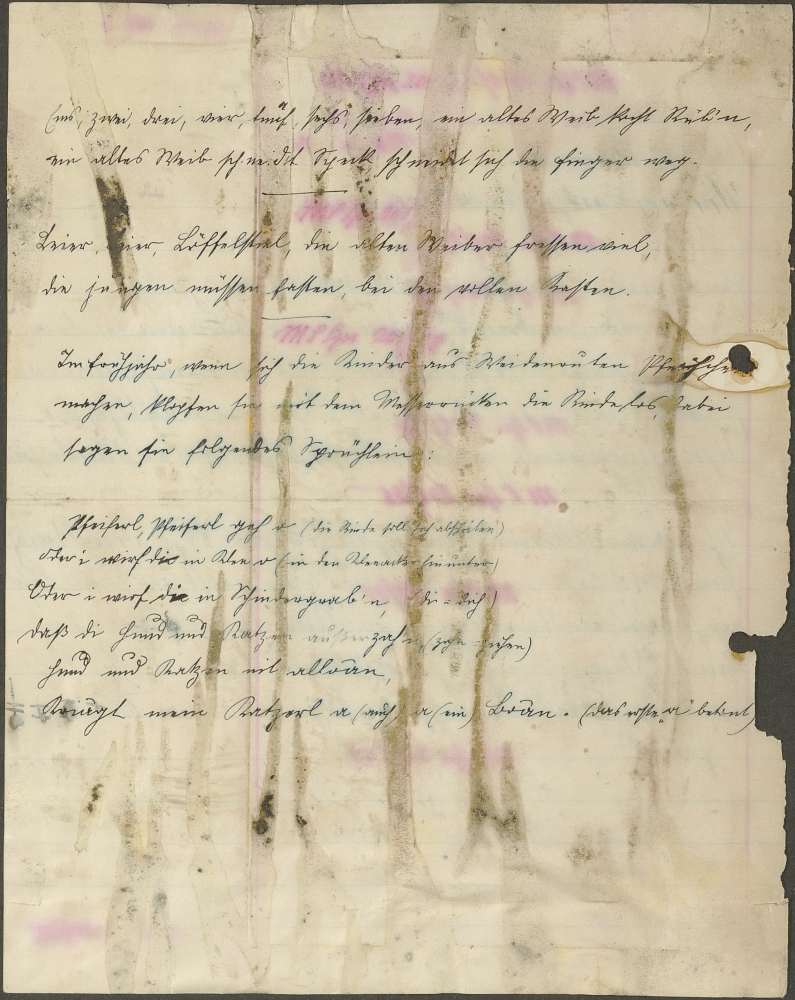 Eins, zwei, drei, vier, fünf, sechs, sieben, ein altes Weib kocht Rüb'n,
ein altes Weib schneidet Speck schneidet sich die Finger weg.
Leier, Leier, Löffelstiel, die alten Weiber fressen viel,
die jungen müssen fasten, bei den vollen Kasten.
Im Frühjahr, wenn sich die Kinder aus Weidenruten Pfeifchen
machen, klopfen sie mit dem Messerrücken die Rinde los, dabei
sagen sie folgendes Sprüchlein:
Pfeiferl, Pfeiferl geh o (die Rinde soll sich abschälen)
oder i wirf di in Klee o (in den Kleeacker hinunter)
Oder i wirf di in Schindergrab'n, (di = dich)
daß di Hund und Katzen außerzahn (zahn = ziehen)
Hund und Katzen nit alloan,
Kriagt mein Katzerl a (auch) a (ein) Boan. (das erste "a" betont)